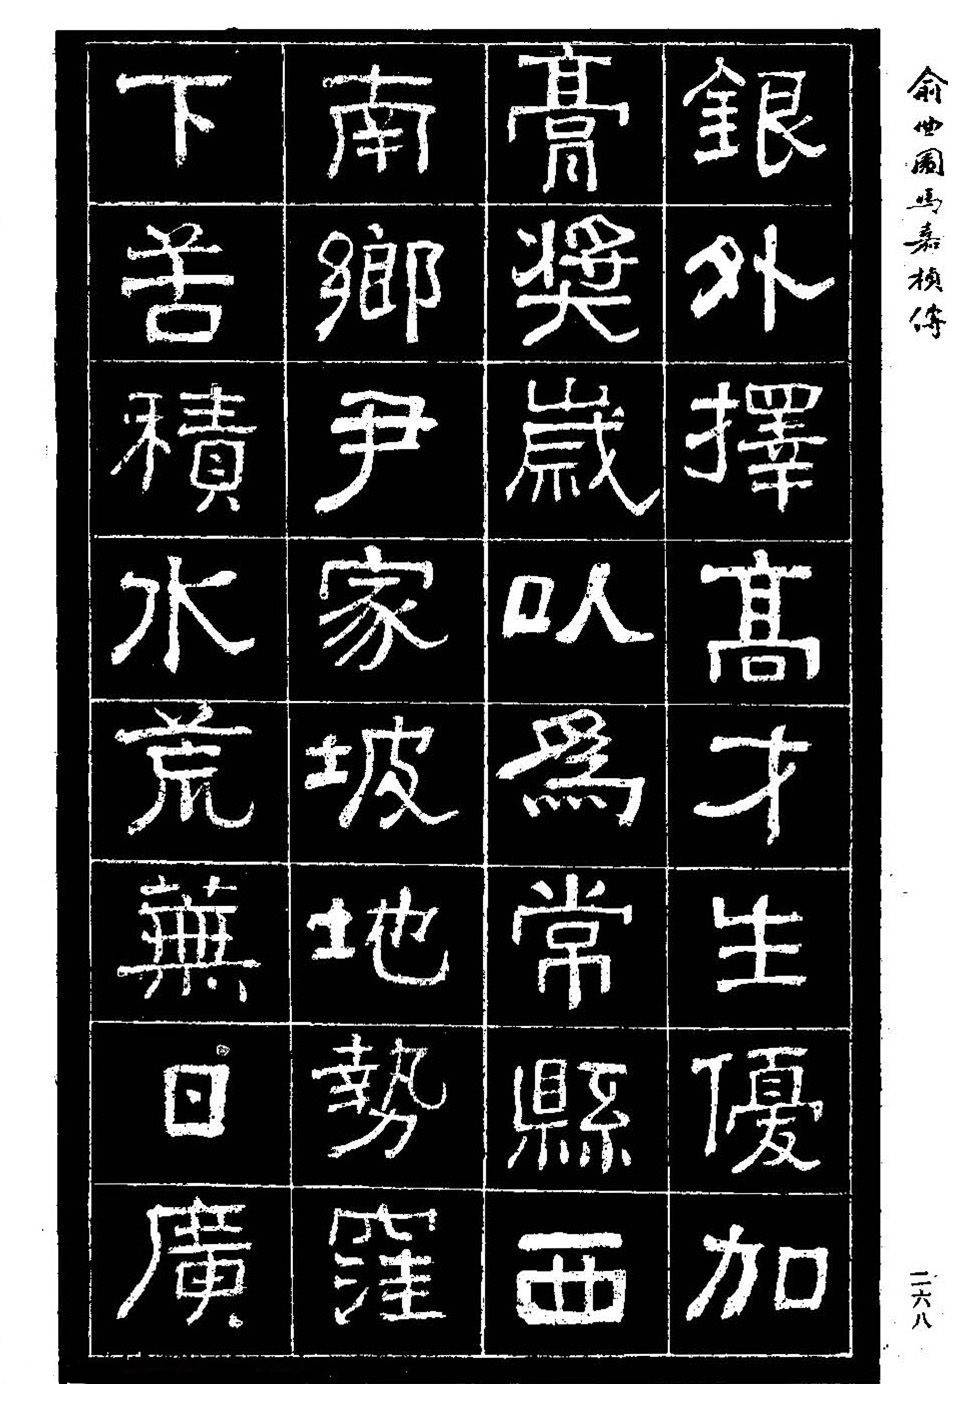 俞曲園馬嘉楨傳
銀外擇高才生優加
膏獎歲以為常縣西
南鄉尹家坡地勢窪
下苦積水荒蕪日廣
二六八